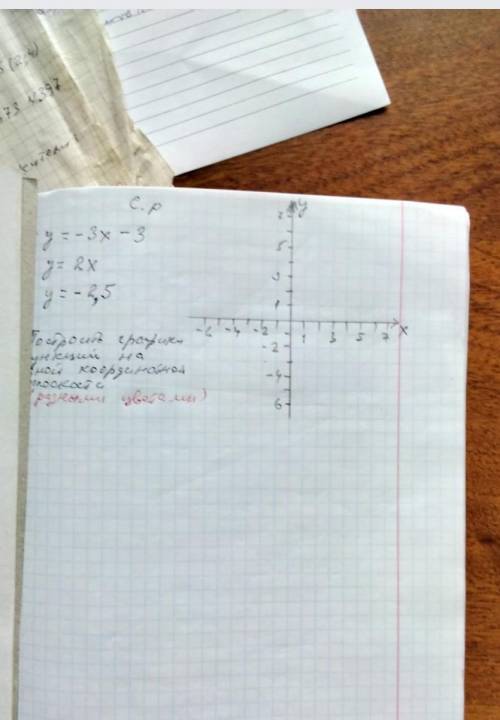 5 (2;4)
73 N.397
С.р
y = -3x - 3
y = 2x
y = -2,5
Построить графики
ункций на
ной координатной
лоскости
(разными цветами)
y
7
5
3
1
-6 -4 -2 1 3 5 7 x
-2
-4
6